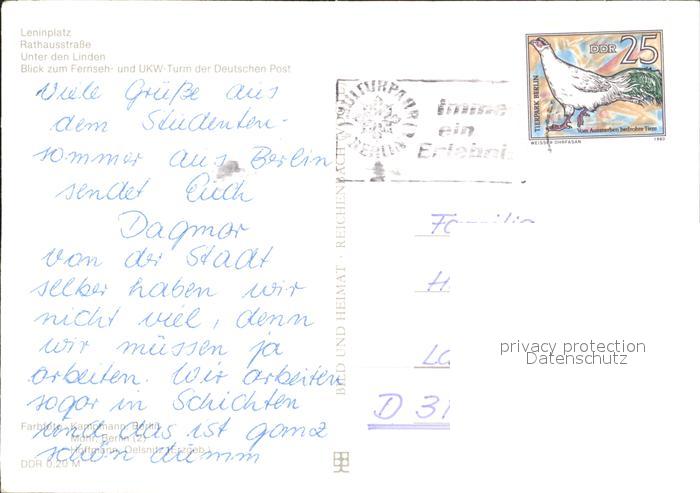 Leninplatz
Rathausstraße
Unter den Linden
Blick zum Fernseh- und UKW-Turm der Deutschen Post
Viele Grüße aus
dem Studenten-
sommer aus Berlin
sendet Euch
Dagmar
von der Stadt
selber haben wir
nicht viel, denn
wir müssen ja
arbeiten. Wir arbeiten
sogar in Schichten
und das ist ganz
schön dumm
Farbfoto: Kampmann, Berlin
Mohr, Berlin (2)
Hoffmann, Oelsnitz (Erzgeb.)
DDR 0,20 M
BILD UND HEIMAT · REICHENBACH
KULTURPARK
BERLIN
immer
ein
Erlebnis
DDR 25
TIERPARK BERLIN
Vom Aussterben bedrohte Tiere
WEISSER OHRFASAN
1980
Familie
H
D 31
privacy protection
Datenschutz